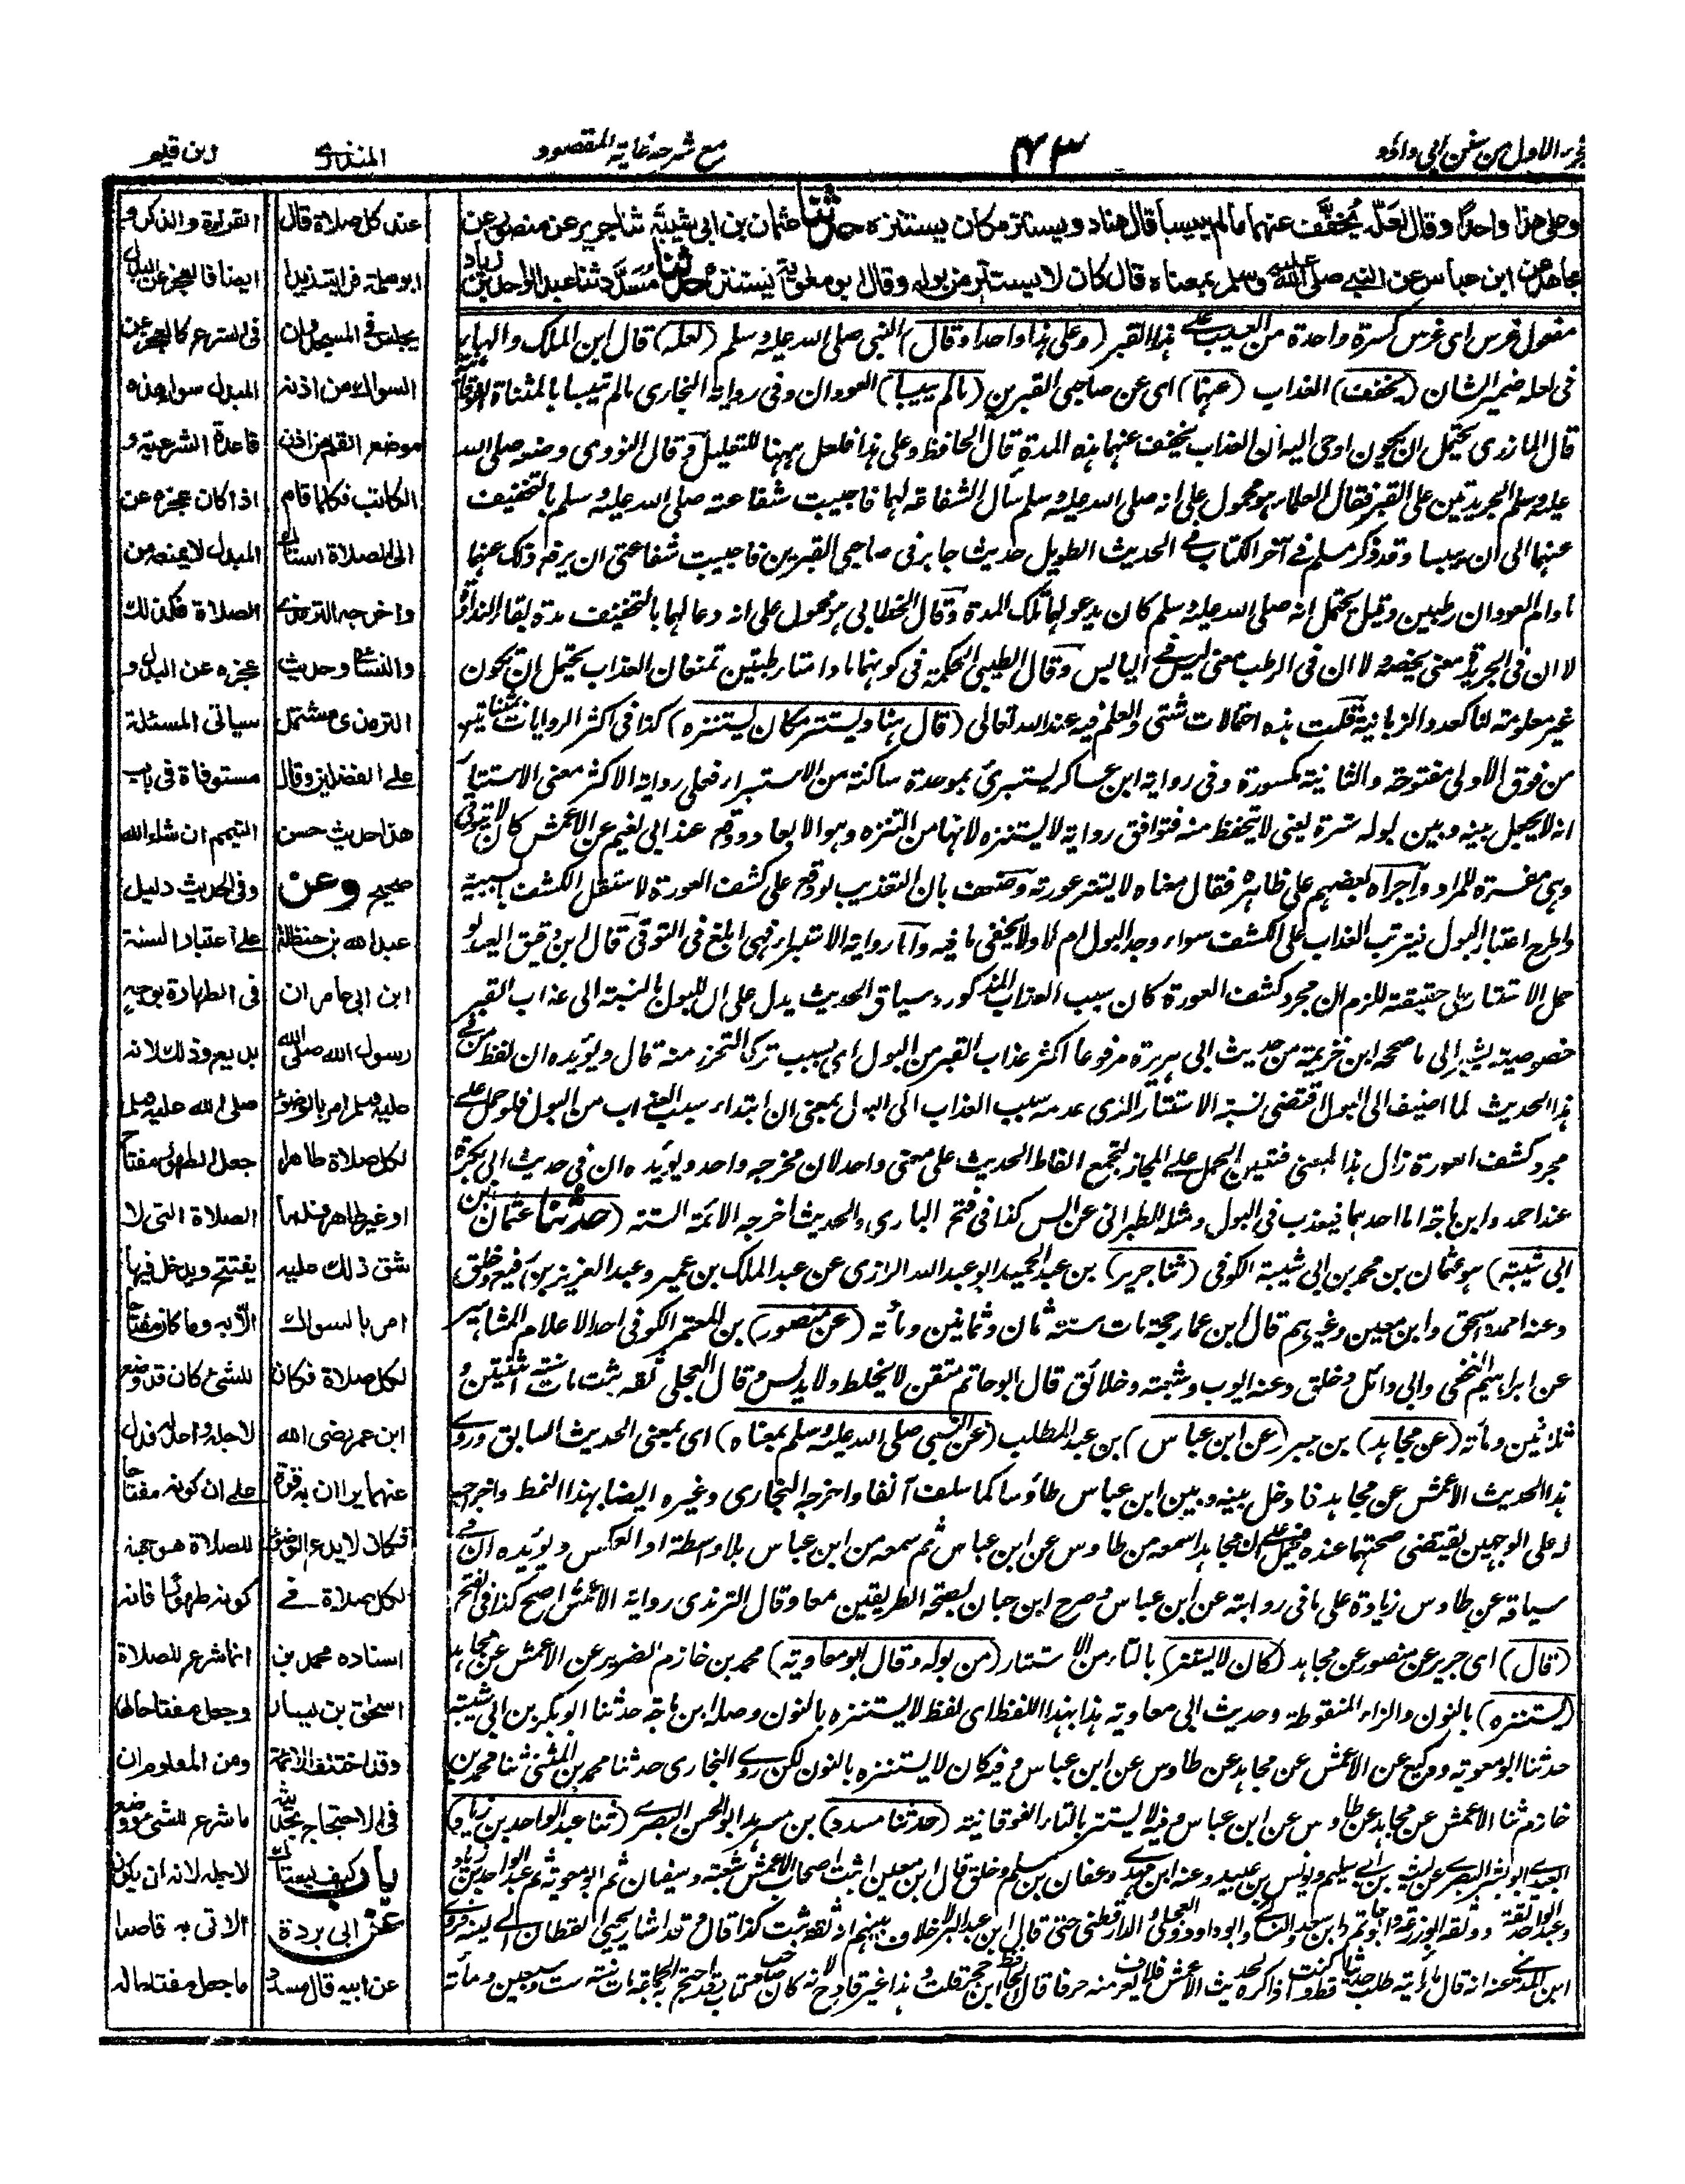 الجزء الاول من سنن ابى داؤد
٤٣
مع شرحه غاية المقصود
المنذرى
ابن قيم
وعلى هذا واحدًا وقال لعلّه يُخفَّف عنهما ما لم ييبسا قال هناد ويستتر مكان يستنزه حدثنا عثمان بن ابى شيبة ثنا جرير عن منصور عن
مجاهد عن ابن عباس عن النبي صلى الله عليه وسلم بمعناه قال كان لا يستتر من بوله وقال ابو معوية يستنزه حدثنا مسدد ثنا عبد الواحد بن زياد
مفعول غرس اى غرس كسرة واحدة من العسيب على هذا القبر (وعلى هذا واحدا وقال) النبى صلى الله عليه وسلم (لعله) قال ابن الملك والهاء
فى لعله ضمير الشان (يخفف) العذاب (عنهما) اى عن صاحبى القبرين (ما لم ييبسا) العودان وفى رواية البخارى ما لم تيبسا بالمثناة الفوقانية
قال المازرى يحتمل ان يكون اوحى اليه ان العذاب يخفف عنهما هذه المدة قال الحافظ وعلى هذا فلعل ههنا للتعليل وقال النووى وضعه صلى الله
عليه وسلم الجريدتين على القبر فقال العلماء هو محمول على انه صلى الله عليه وسلم سأل الشفاعة لهما فاجيبت شفاعته صلى الله عليه وسلم بالتخفيف
عنهما الى ان ييبسا وقد ذكر مسلم فى آخر الكتاب فى الحديث الطويل حديث جابر فى صاحبى القبرين فاجيبت شفاعتى ان يرفه ذلك عنهما
ما دام العودان رطبين وقيل يحتمل انه صلى الله عليه وسلم كان يدعو لهما تلك المدة وقال الخطابى هو محمول على انه دعا لهما بالتخفيف مدة بقاء النداوة
لا ان فى الجريدة معنى يخصه ولا ان فى الرطب معنى ليس فى اليابس وقال الطيبى الحكمة فى كونهما ما دامتا رطبتين تمنعان العذاب يحتمل ان تكون
غير معلومة لنا كعدد الزبانية قلت هذه احتمالات شتى والعلم فيه عند الله تعالى (قال هناد يستتر مكان يستنزه) كذا فى اكثر الروايات بمثناتين
من فوق الاولى مفتوحة والثانية مكسورة وفى رواية ابن عساكر يستبرئ بموحدة ساكنة من الاستبراء فعلى رواية الاكثر معنى الاستتار
انه لا يجعل بينه وبين بوله سترة يعنى لا يتحفظ منه فتوافق رواية لا يستنزه لانها من التنزه وهو الابعاد ووقع عند ابى نعيم عن الاعمش كان لا يتوقى
وهى مفسرة للمراد واجراه بعضهم على ظاهره فقال معناه لا يستر عورته وضعف بان التعذيب لو وقع على كشف العورة لاستقل الكشف بالسببية
واطرح اعتبار البول فيترتب العذاب على الكشف سواء وجد البول ام لا ولا يخفى ما فيه واما رواية الاستبراء فهى ابلغ فى التوقى قال ابن دقيق العيد لو
حمل الاستتار على حقيقته للزم ان مجرد كشف العورة كان سبب العذاب المذكور وسياق الحديث يدل على ان للبول بالنسبة الى عذاب القبر
خصوصية يشير الى ما صححه ابن خزيمة من حديث ابى هريرة مرفوعا اكثر عذاب القبر من البول اى بسبب ترك التحرز منه قال ويؤيده ان لفظ من فى
هذا الحديث لما اضيف الى البول اقتضى نسبة الاستتار الذى عدمه سبب العذاب الى البول بمعنى ان ابتداء سبب العذاب من البول فلو حمل على
مجرد كشف العورة زال هذا المعنى فتعين الحمل على المجاز لتجتمع الفاظ الحديث على معنى واحد لان مخرجه واحد ويؤيده ان فى حديث ابى بكرة
عند احمد وابن ماجة اما احدهما فيعذب فى البول ومثله للطبرانى عن انس كذا فى فتح البارى والحديث اخرجه الائمة الستة (حدثنا عثمان بن
ابى شيبة) هو عثمان بن محمد بن ابى شيبة الكوفى (ثنا جرير) بن عبد الحميد ابو عبد الله الرازى عن عبد الملك بن عمير وعبد العزيز بن رفيع وخلق
وعنه احمد واسحق وابن معين وغيرهم قال ابن عمار حجة مات سنة ثمان وثمانين ومأته (عن منصور) بن المعتمر الكوفى احد الاعلام المشاهير
عن ابراهيم النخعى وابى وائل وخلق وعنه ايوب وشعبة وخلائق قال ابو حاتم متقن لا يخلط ولا يدلس وقال العجلى ثقة ثبت مات سنة اثنتين و
ثلاثين ومأته (عن مجاهد) بن جبر (عن ابن عباس) بن عبد المطلب (عن النبى صلى الله عليه وسلم بمعناه) اى بمعنى الحديث السابق وروى
هذا الحديث الاعمش عن مجاهد فادخل بينه وبين ابن عباس طاؤسا كما سلف آنفا واخرجه البخارى وغيره ايضا بهذا النمط واخراجه
له على الوجهين يقتضى صحتهما عنده فيحمل على ان مجاهدا سمعه من طاوس عن ابن عباس ثم سمعه من ابن عباس بلا واسطة او العكس ويؤيده ان فى
سياقه عن طاوس زيادة على ما فى روايته عن ابن عباس وصرح ابن حبان بصحة الطريقين معا وقال الترمذى رواية الاعمش اصح كذا فى الفتح
(قال) اى جرير عن منصور عن مجاهد (كان لا يستتر) بالتاء من الاستتار (من بوله وقال ابو معاوية) محمد بن خازم الضرير عن الاعمش عن مجاهد
(يستنزه) بالنون والزاء المنقوطة وحديث ابى معاوية هذا بهذا اللفظ اى لفظ لا يستنزه بالنون وصله ابن ماجة حدثنا ابو بكر بن ابى شيبة
حدثنا ابو معوية ووكيع عن الاعمش عن مجاهد عن طاوس عن ابن عباس وفيه كان لا يستنزه بالنون لكن روى البخارى حدثنا محمد بن المثنى ثنا محمد بن
خازم ثنا الاعمش عن مجاهد عن طاوس عن ابن عباس وفيه لا يستتر بالتاء الفوقانية (حدثنا مسدد) بن مسرهد ابو الحسن البصرى (ثنا عبد الواحد بن زياد)
العبدى ابو بشر البصرى عن ليث بن ابى سليم ويونس بن عبيد وعنه ابن مهدى وعفان بن مسلم وخلق قال ابن معين اثبت اصحاب الاعمش شعبة وسفيان ثم ابو معوية ثم عبد الواحد بن زياد
وعبد الواحد ثقة ووثقه ابو زرعة وابو حاتم وابن سعد والنسائى وابو داود والعجلى والدارقطنى حتى قال ابن عبد البر لا خلاف بينهم انه ثقة ثبت كذا قال وقد اشار يحيى القطان الى لينه فروى
ابن المدينى عنه انه قال ما رأيته طلب حديثا قط وكنت اذاكره لحديث الاعمش فلا يعرف منه حرفا قال الحافظ ابن حجر قلت وهذا غير قادح لانه كان صاحب كتاب وقد احتج به الجماعة مات سنة ست وسبعين ومأته
عند كل صلاة قال
ابو سلمة فرايت زيدا
يجلس فى المسجد وان
السواك من اذنه
موضع القلم من اذن
الكاتب فكلما قام
الى الصلاة استاك
واخرجه الترمذى
والنسائى وحديث
الترمذى مشتمل
على الفضلين وقال
هذا حديث حسن
صحيح وعن
عبد الله بن حنظلة
ابن ابى عامر ان
رسول الله صلى الله
عليه وسلم امر بالوضوء
لكل صلاة طاهرا
او غير طاهر فلما
شق ذلك عليه
امر بالسواك
لكل صلاة فكان
ابن عمر رضى الله
عنهما يرى ان به قوة
فكان لا يدع الوضوء
لكل صلاة فى
اسناده محمد بن
اسحق بن يسار
وقد اختلف الائمة
فى الاحتجاج بحديثه
باب كيف يستاك
عن ابى بردة
عن ابيه قال مسدد
القراءة والذكر و
ايضا فالعجز عن البدل
فى الشرع كالعجز عن
المبدل سواء هذه
قاعدة الشريعة و
اذا كان عجزه عن
المبدل لا يمنعه من
الصلاة فكذلك
عجزه عن البدل و
سياتى المسئلة
مستوفاة فى باب
التيمم ان شاء الله
وفى الحديث دليل
على اعتبار النية
فى الطهارة بوجه
بديع وذلك لانه
صلى الله عليه وسلم
جعل الطهور مفتاح
الصلاة التى لا
يفتتح ويدخل فيها
الا به وما كان مفتاحا
للشئ كان قد وضع
لاجله واعد له فدل
على ان كونه مفتاحا
للصلاة هو جهة
كونه طهورا فانه
انما شرع للصلاة
وجعل مفتاحا لها
ومن المعلوم ان
ما شرع للشئ ووضع
لاجله لا بد ان يكون
الآتى به قاصدا
ما جعل مفتاحا له